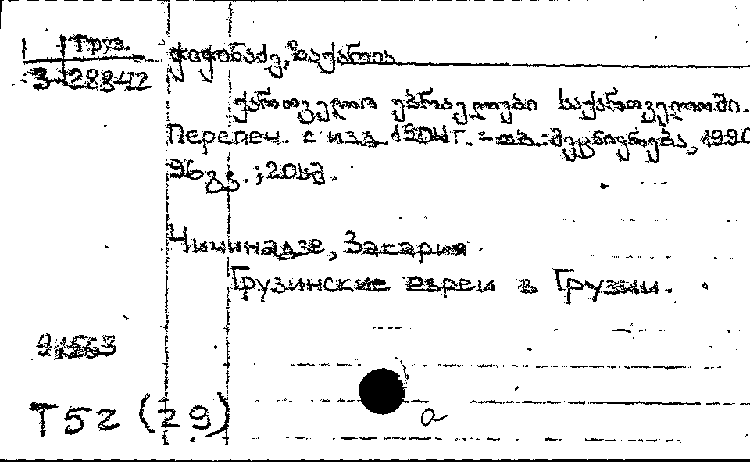 Груз.
3-28842
ჭიჭინაძე, ზაქარია
ქართველი ებრაელები საქართველოში.
Перепеч. с изд. 1904г. - თბ.: მეცნიერება, 1990
96გვ.; 20სმ.
Чичинадзе, Захария
Грузинские евреи в Грузии.
Т52(29)
а